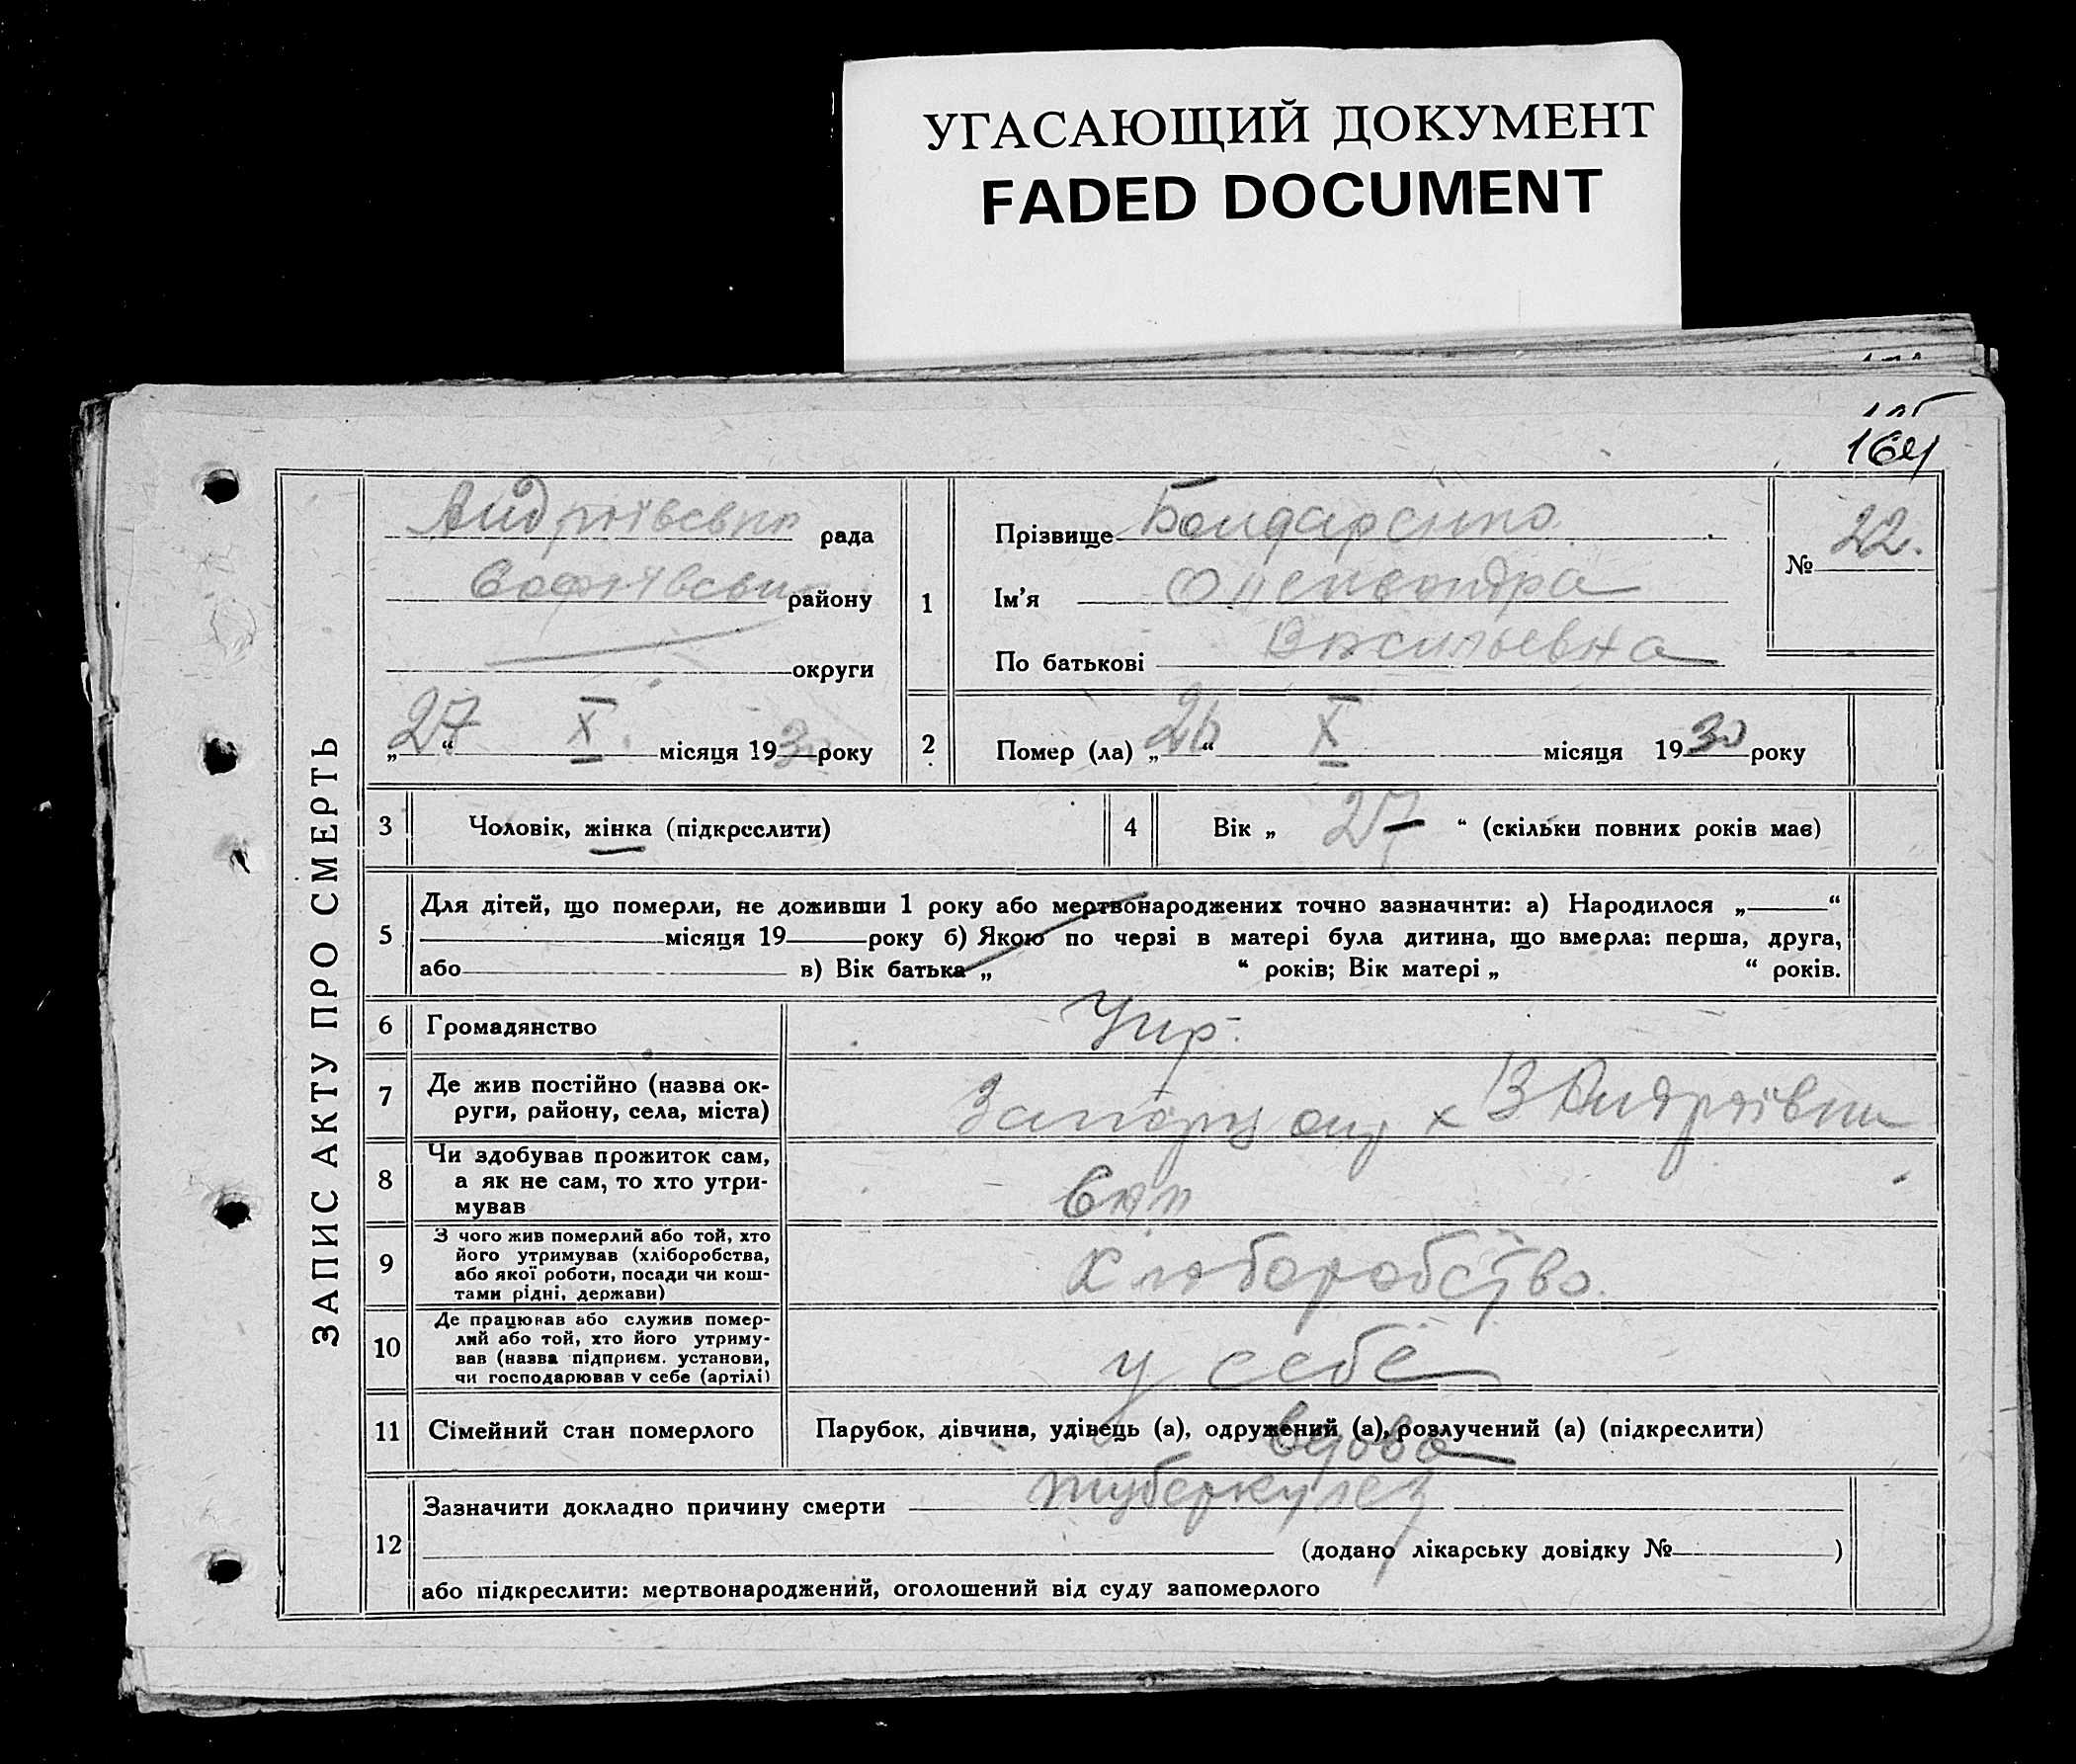 УГАСАЮЩИЙ ДОКУМЕНТ
FADED DOCUMENT
164
ЗАПИС АКТУ ПРО СМЕРТЬ
Андріївська рада
Софіївськ району
округи
„27“ X місяця 1930 року
1
Прізвище Бондаренко
Ім'я Олександра
По батькові Васильевна
№ 22.
2 Помер (ла) „26“ X місяця 1930 року
3 Чоловік, жінка (підкреслити)
4 Вік „ 27 “ (скільки повних років має)
5 Для дітей, що померли, не доживши 1 року або мертвонароджених точно зазначити: а) Народилося „ “
місяця 19 року б) Якою по черзі в матері була дитина, що вмерла: перша, друга,
або в) Вік батька „ “ років; Вік матері „ “ років.
6 Громадянство Укр.
7 Де жив постійно (назва ок-
руги, району, села, міста) х В Андріївка
8 Чи здобував прожиток сам,
а як не сам, то хто утри-
мував Сам
9 З чого жив померлий або той, хто
його утримував (хліборобства,
або якої роботи, посади чи кош-
тами рідні, держави) Хлоборобство.
10 Де працював або служив помер-
лий або той, хто його утриму-
вав (назва підприєм. установи,
чи господарював у себе (артілі) у себе
11 Сімейний стан померлого Парубок, дівчина, удівець (а), одружений (а), розлучений (а) (підкреслити)
вдова
12 Зазначити докладно причину смерти туберкулез
(додано лікарську довідку № )
або підкреслити: мертвонароджений, оголошений від суду запомерлого